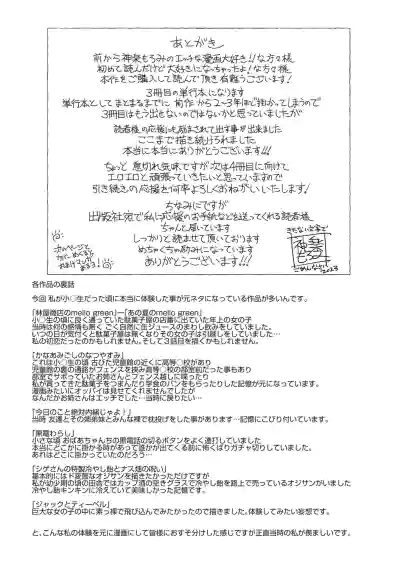 あとがき
前から神楽もろみのエッチな漫画大好き!!な方々様
初めて読んだけど大好きになっちゃったよ!な方々様
本作をご購入して読んで頂き有難うございます!
3冊目の単行本になります
単行本としてまとまるまでに前作から2〜3年ほど掛かってしまうので
3冊目はもう出せないのではないかと思っていましたが
読者様の応援に励まされて出す事が出来ました
ここまで描き続けられました
本当に本当にありがとうございます!!!
ちょっと息切れ気味ですが次は4冊目に向けて
エロエロと頑張っていきたいと思っていますので
引き続きの応援を何卒よろしくおねがいいたします!
ちなみにですが
出版社宛で私に応援のお手紙などを送ってくれる読者様
ちゃんと届いています
しっかりと読ませて頂いております
めちゃくちゃ励みになっています
ありがとうございます!!!
各作品の裏話
今回 私が小〇生だった頃に本当に体験した事が元ネタになっている作品が多いんです。
「林屋商店のmello green」―「あの夏のmello green」
小〇生の頃に良く通っていた駄菓子屋の店番に出ていた年上の女の子
当時は何の感情も無く ごく自然に缶ジュースのまわし飲みをしていました。
いつの日が覚えてなく駄菓子屋は無くなりその女の子は引越しをしていました…
私の初恋だったのかもしれません。そして3話目を描くかもしれません。
「かなあみごしのなつやすみ」
これは小〇生の頃 古びた児童館の近くに高等〇校があり
児童館の裏の通路がフェンスを挟み高等〇校の部室前だった事もあり
部室でサボっていたお姉さんとフェンス越しに喋ったり
私が買ってきた駄菓子をつまんだり学食のパンをもらったりした記憶が元になっています。
漫画みたいにオッパイは見せてくれませんでしたが
なんだかお姉さんはエッチでした…当時に戻りたい…
「今日のこと絶対内緒じゃよ!」
当時 友達とその姉弟妹とみんな裸で枕投げをした事があります…記憶にこびり付いています。
「黒電わらし」
小さな頃 おばあちゃんちの黒電話の切るボタンをよく連打していました
本当にどこかに掛かる時があって誰かが出てくる前に怖くばりガチャ切りしていました。
あれはどこに掛かっていたのだろう…
「シゲさんの特製冷やし飴とナス畑の呪い」
基本的にはド変態なオジサンを描きたかっただけですが
私が幼少期の頃の田舎ではカップ酒の空きグラスで冷やし飴を路上で売っているオジサンがいました
冷やし飴キンキンに冷えていて美味しかった記憶です。
「ジャックとティーベル」
巨大な女子の中に素っ裸で飛び込んでみたかったので描きました。体験してみたい妄想です。
と、こんな私の体験を元に漫画にして皆様におすそ分けした感じですが正直当時の私が羨ましいです。